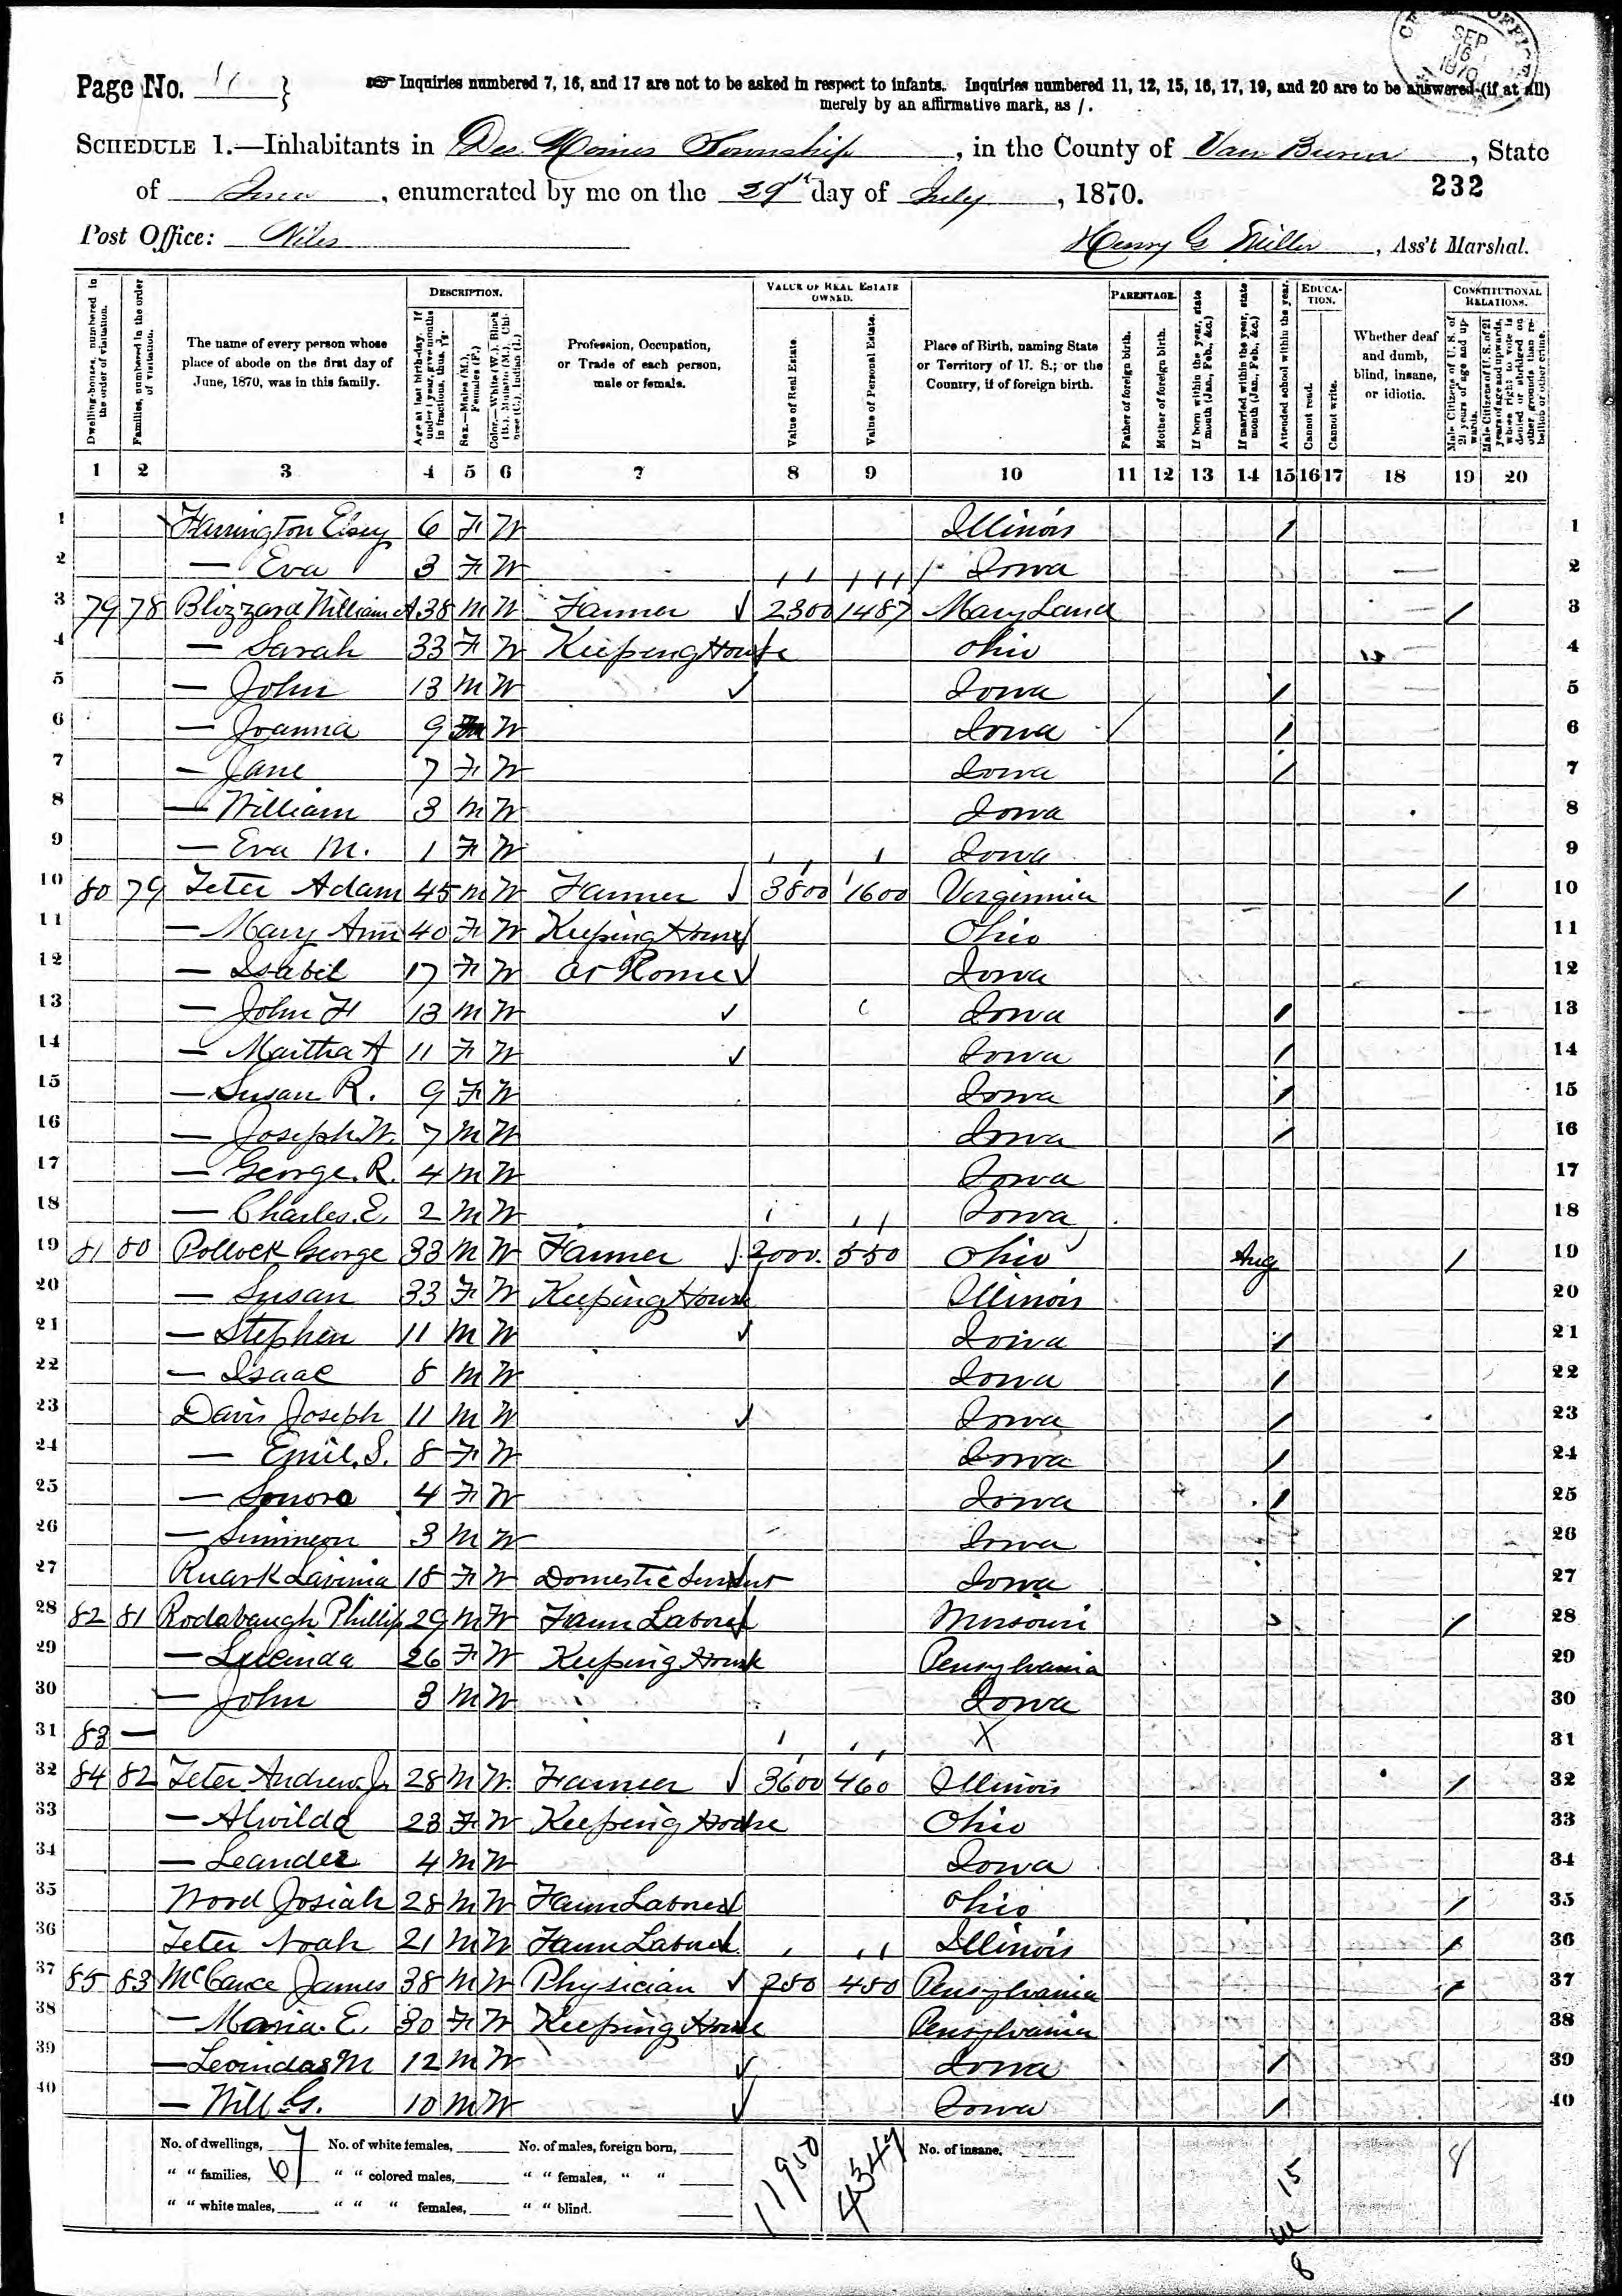 CE OFFI
SEP
16
1870
Page No. 11 }
☞ Inquiries numbered 7, 16, and 17 are not to be asked in respect to infants. Inquiries numbered 11, 12, 15, 16, 17, 19, and 20 are to be answered (if at all)
merely by an affirmative mark, as /.
SCHEDULE 1.—Inhabitants in Des Moines Township, in the County of Van Buren, State
of Iowa, enumerated by me on the 29th day of July, 1870.
232
Post Office: Niles
Henry G Miller, Ass't Marshal.
Dwelling-houses, numbered in the order of visitation.
Families, numbered in the order of visitation.
The name of every person whose place of abode on the first day of June, 1870, was in this family.
DESCRIPTION.
Age at last birth-day. If under 1 year, give months in fractions, thus, 3/12.
Sex.—Males (M.), Females (F.)
Color.—White (W.), Black (B.), Mulatto (M.), Chinese (C.), Indian (I.)
Profession, Occupation, or Trade of each person, male or female.
VALUE OF REAL ESTATE OWNED.
Value of Real Estate.
Value of Personal Estate.
Place of Birth, naming State or Territory of U. S.; or the Country, if of foreign birth.
PARENTAGE.
Father of foreign birth.
Mother of foreign birth.
If born within the year, state month (Jan., Feb., &c.)
If married within the year, state month (Jan., Feb., &c.)
Attended school within the year.
EDUCATION.
Cannot read.
Cannot write.
Whether deaf and dumb, blind, insane, or idiotic.
CONSTITUTIONAL RELATIONS.
Male Citizens of U. S. of 21 years of age and upwards.
Male Citizens of U. S. of 21 years of age and upwards, whose right to vote is denied or abridged on other grounds than rebellion or other crime.
1 2 3 4 5 6 7 8 9 10 11 12 13 14 15 16 17 18 19 20
1 Harrington Elsey 6 F W Illinois / 1
2 — Eva 3 F W Iowa 2
3 79 78 Blizzard William A 38 M W Farmer 2300 1487 Mary Land / 3
4 — Sarah 33 F W Keeping House Ohio 4
5 — John 13 M W Iowa / 5
6 — Joanna 9 W Iowa / 6
7 — Jane 7 F W Iowa / 7
8 — William 3 M W Iowa 8
9 — Eva M. 1 F W Iowa 9
10 80 79 Teter Adam 45 M W Farmer 3800 1600 Verginnia / 10
11 — Mary Ann 40 F W Keeping House Ohio 11
12 — Isabel 17 F W At Home Iowa 12
13 — John H 13 M W Iowa / 13
14 — Martha A 11 F W Iowa / 14
15 — Susan R. 9 F W Iowa / 15
16 — Joseph W. 7 M W Iowa / 16
17 — George. R. 4 M W Iowa 17
18 — Charles. E. 2 M W Iowa 18
19 81 80 Pollock George 33 M W Farmer 2000. 550 Ohio Aug / 19
20 — Susan 33 F W Keeping House Illinois 20
21 — Stephen 11 M W Iowa / 21
22 — Isaac 8 M W Iowa / 22
23 Davis Joseph 11 M W Iowa / 23
24 — Emil. S. 8 F W Iowa / 24
25 — Sonora 4 F W Iowa / 25
26 — Simmeon 3 M W Iowa 26
27 Ruark Lavinia 18 F W Domestic Servant Iowa 27
28 82 81 Rodabaugh Phillip 29 M W Farm Laborer Missouri / 28
29 — Lucinda 26 F W Keeping House Pensylvania 29
30 — John 3 M W Iowa 30
31 83 — X 31
32 84 82 Teter Andrew Jr 28 M W. Farmer 3600 460 Illinois / 32
33 — Alwilda 23 F W Keeping House Ohio 33
34 — Leander 4 M W Iowa 34
35 Wood Josiah 28 M W Farm Laborer Ohio / 35
36 Teter Noah 21 M W Farm Laborer Illinois / 36
37 85 83 McCance James 38 M W Physician 250 450 Pensylvania / 37
38 — Maria. E. 30 F W Keeping House Pensylvania 38
39 — Leonidas M 12 M W Iowa / 39
40 — Will G. 10 M W Iowa / 40
No. of dwellings, 7 No. of white females, No. of males, foreign born, 11950 4347 No. of insane. 15 8
" " families, 6 " " colored males, " " females, " "
" " white males, " " " females, " " blind.
8